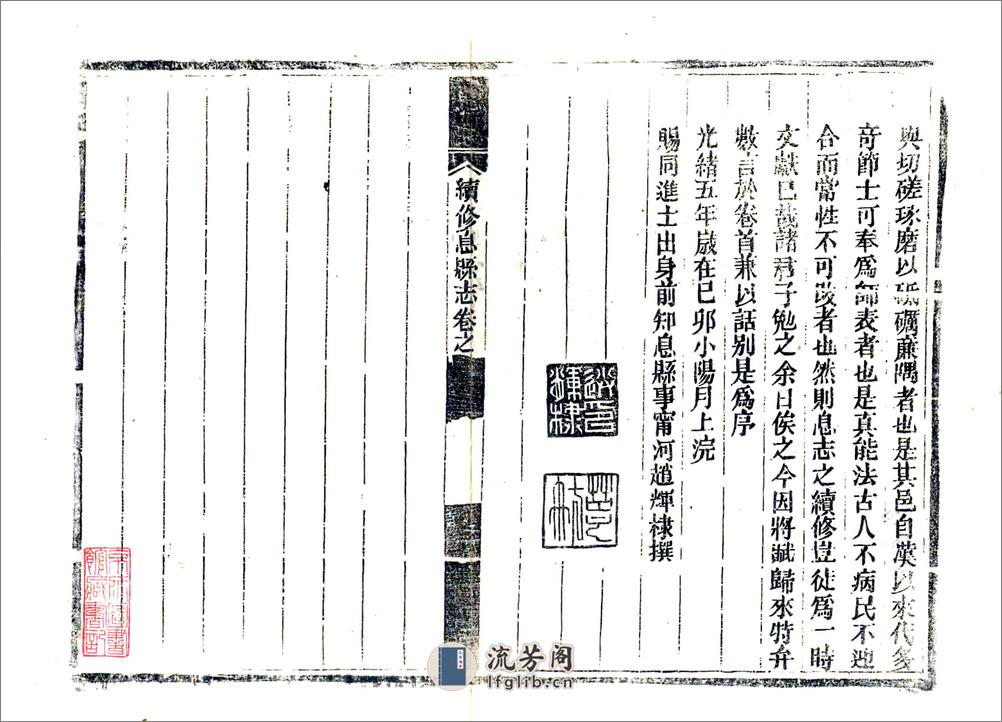 與切磋琢磨以砥礪亷隅者也是其邑自漢以來代多
奇節士可奉爲師表者也是真能法古人不病民不迎
合而常性不可改者也然則息志之續修豈徒爲一時
文獻已哉諸君子勉之余日俟之今因將賦歸來特弁
數言於卷首兼以話别是爲序
光緒五年歲在己卯小陽月上浣
賜同進士出身前知息縣事甯河趙煇棣撰
趙印煇棣
續修息縣志卷之
流芳阁
lfglib.cn